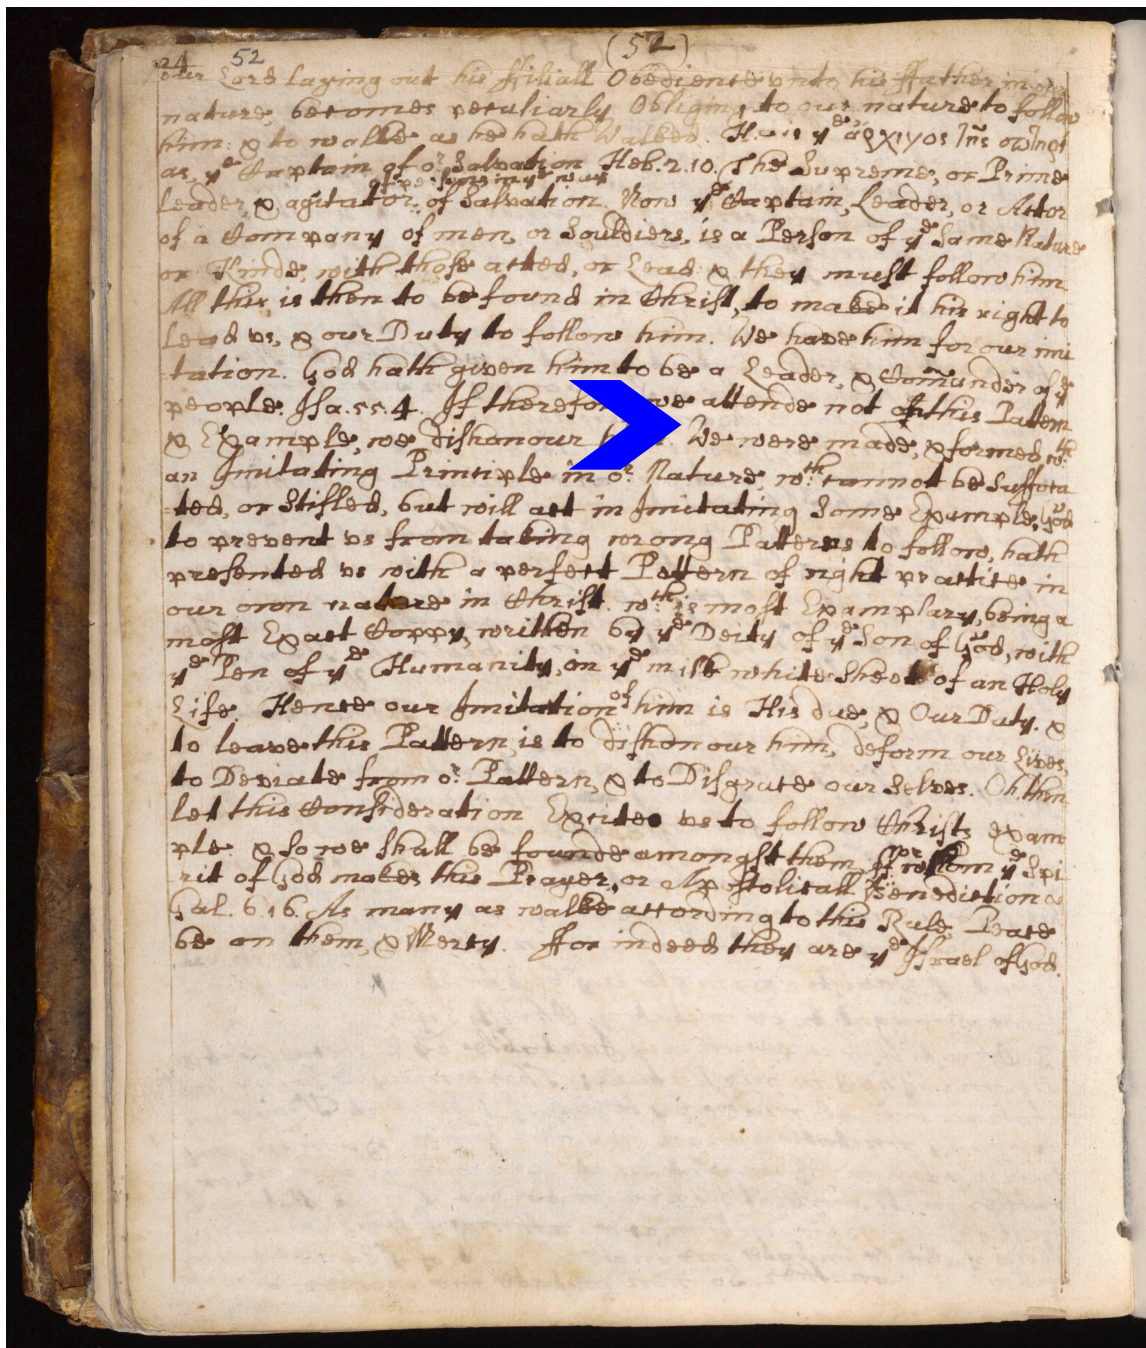 24 52 (52)
our Lord laying out his ffiliall Obedience vnto his ffather in our
nature becomes peculiarly Obliging to our nature to follow
him: & to walke as he hath Walked. He is yᵉ
as, yᵉ Captain of oʳ Salvation Heb. 2. 10. The Supreme, or Prime
Leader, & agitator of Salvation. Now yᵉ Captain, Leader, or Actor
of a Company of men, or Souldiers, is a Person of yᵉ Same Nature
or Kinde, with those acted, or Lead: & they must follow him.
All this, is then to be found in Christ, to make it his right to
lead vs, & our Duty to follow him. We have him for our imi
-tation. God hath given him to be a Leader, & Com̄ander of yᵉ
people. Isa. 55. 4. If therefore we attende not this Pattern
& Example, we dishonour We were made, & formed wᵗʰ
an Imitating Principle in oʳ Nature, wᶜʰ cannot be Suffoca
-ted, or Stifled, but will act in Imitating Some Example, God
to prevent vs from taking wrong Patterns to follow, hath
presented vs with a perfect Pattern of right practice in
our own nature in Christ. wᶜʰ is most Examplary, being a
most Exact Coppy, written by yᵉ Deity of yᵉ Son of God, with
yᵉ Pen of yᵉ Humanity, on yᵉ milk white Sheete of an Holy
Life. Hence our Imitation of him is His due, & Our Duty. &
to leave this Pattern, is to dishonour him, deform our Lives,
to Deviate from oʳ Pattern, & to Disgrace our Selves. Oh. then
let this Consideration Excite vs to follow Christs exam
ple. & so we shall be founde amongst them for whom yᵉ Spi
rit of God makes this Prayer, or Apostolicall Benediction
Gal. 6. 16. As many as walke according to this Rule Peace
be on them, & Mercy. ffor indeed they are yᵉ Israel of God.